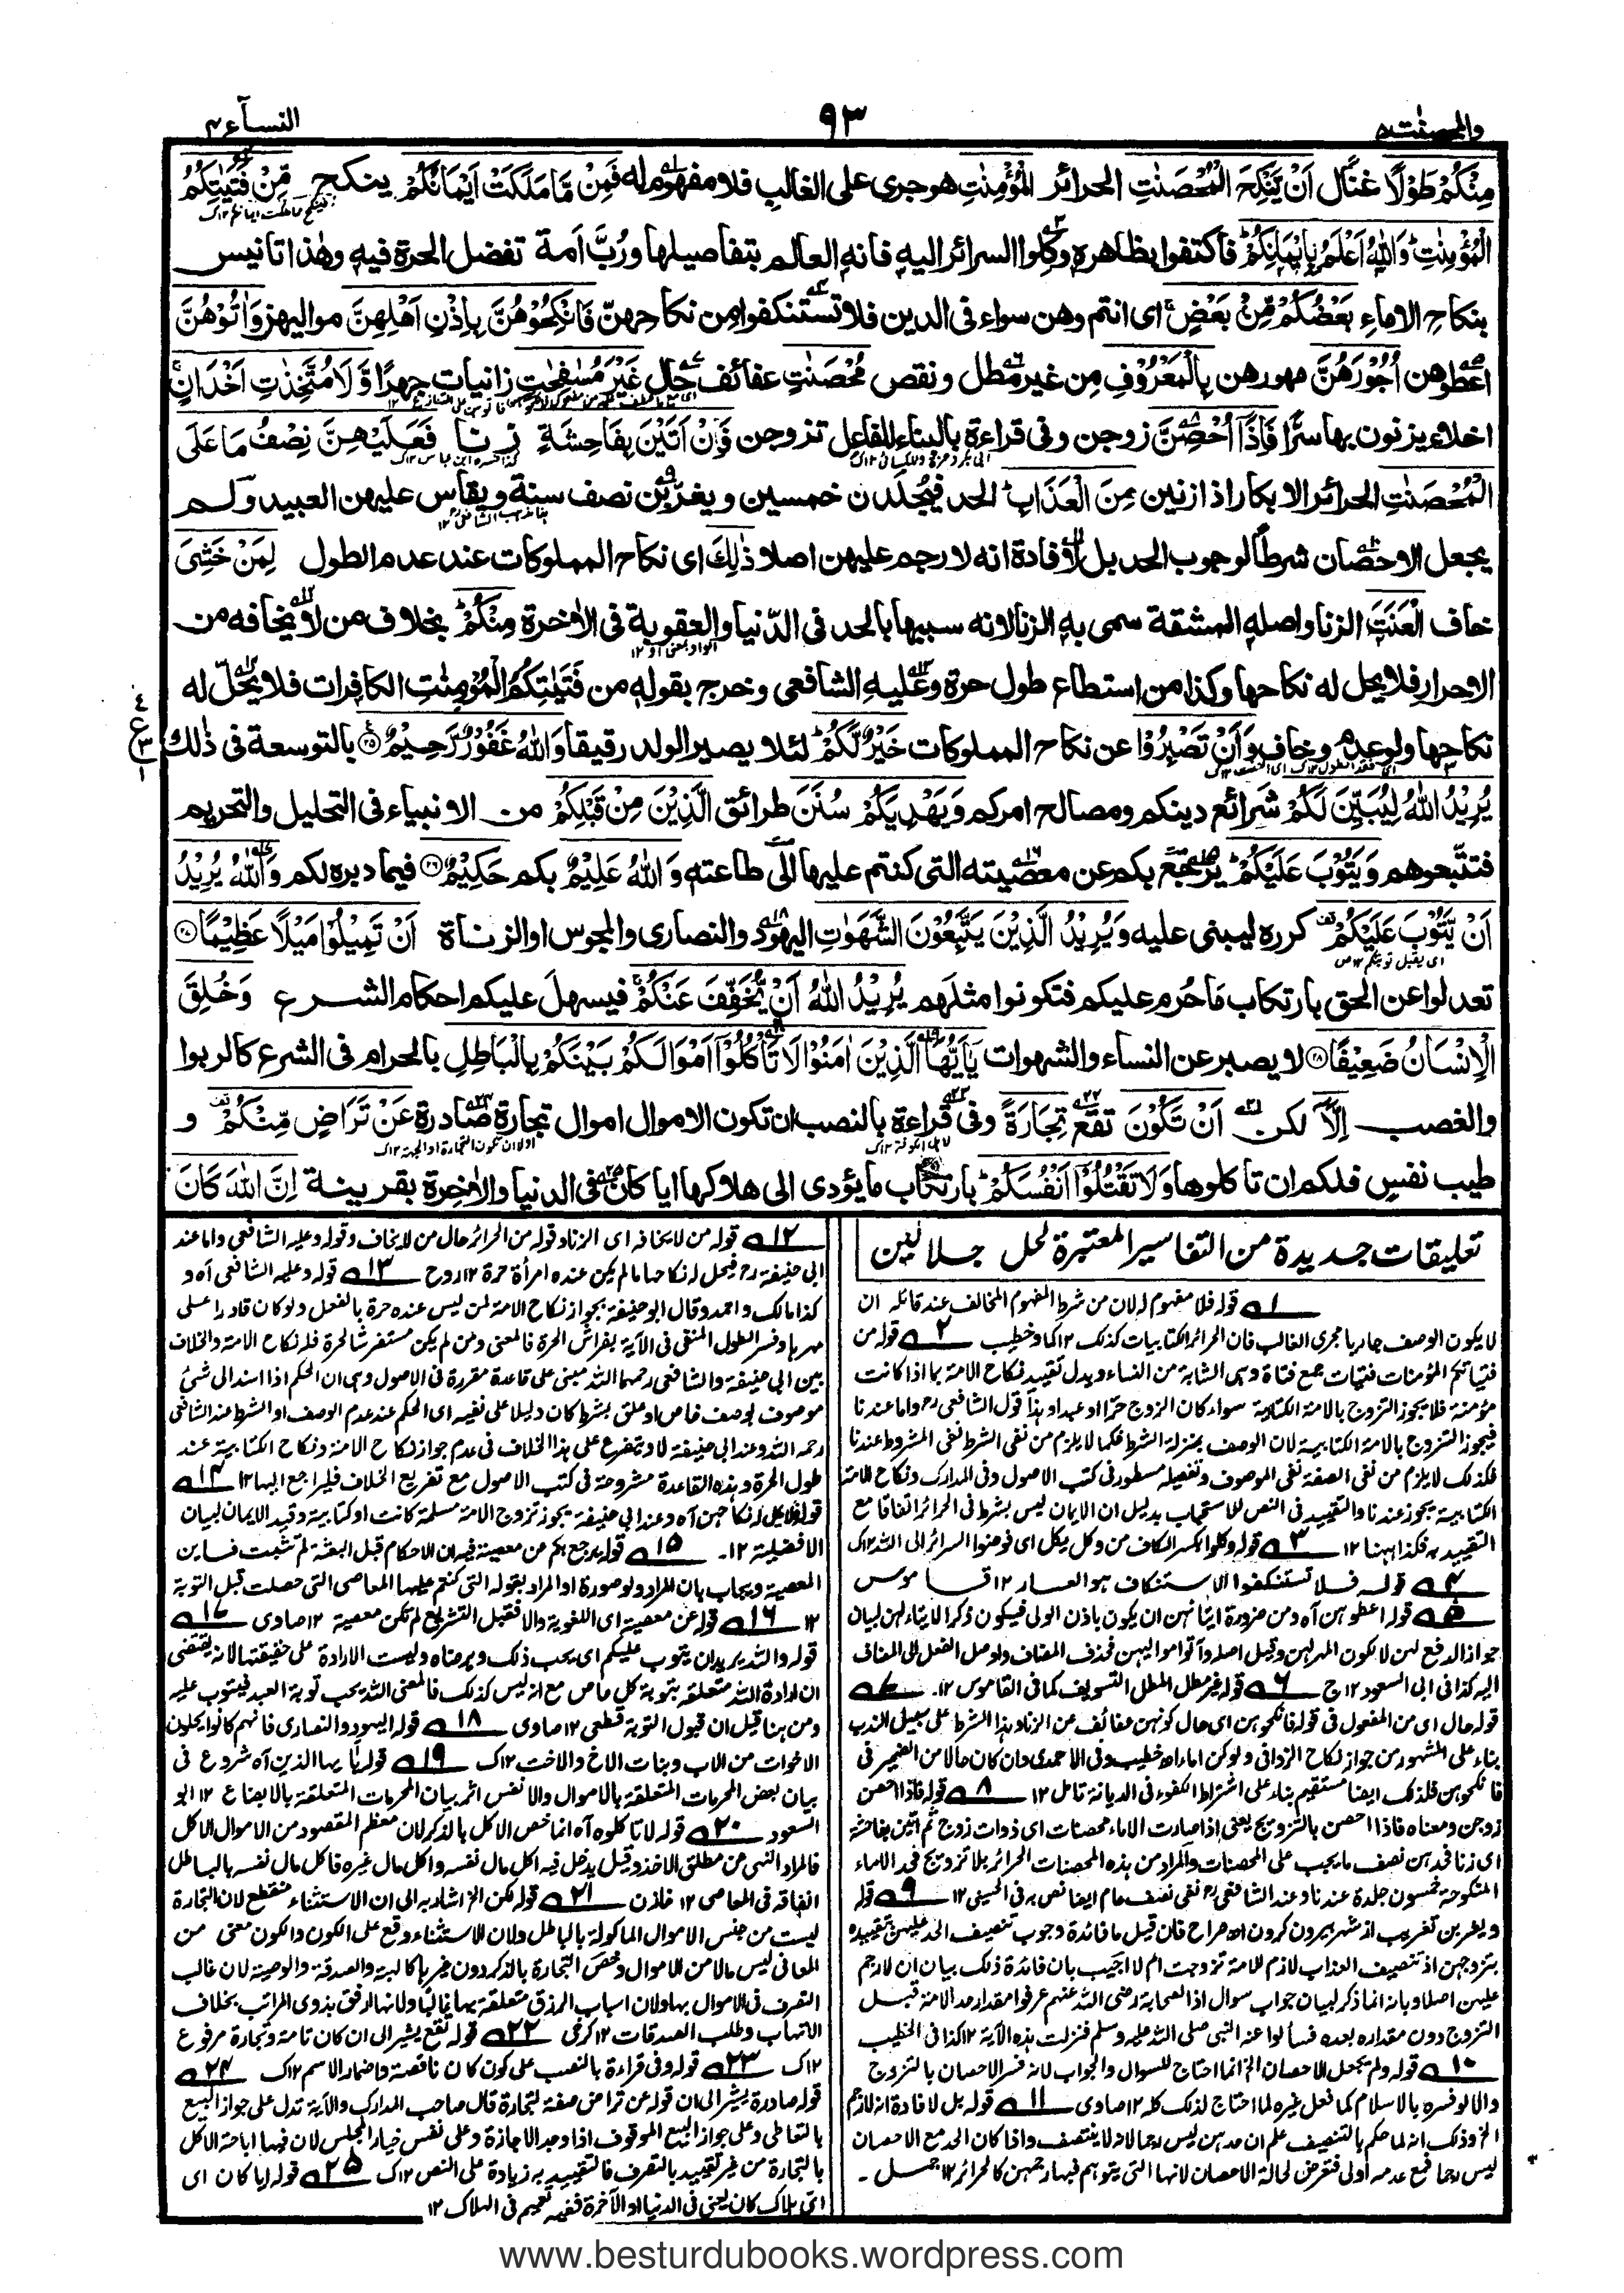 النسآء ٤
٩٣
والمحصنٰت ٥
مِنْكُمْ طَوْلًا غنًى ل اَنْ يَّنْكِحَ الْمُحْصَنٰتِ الحرائر الْمُؤْمِنٰتِ هو جرى على الغالب فلا مفهوم له فَمِنْ مَّا مَلَكَتْ اَيْمَانُكُمْ ينكح مِّنْ فَتَيٰتِكُمُ
الْمُؤْمِنٰتِ ؕ وَاللّٰهُ اَعْلَمُ بِاِيْمَانِكُمْ ؕ فاكتفوا بظاهره وكلوا السرائر اليه فانه العالم بتفاصيلها ورُبَّ اَمة تفضل الحرة فيه وهٰذا تانيس
بنكاح الاماءِ بَعْضُكُمْ مِّنْ بَعْضٍ ۚ اى انتم وهن سواء فى الدين فلا تستنكفوا من نكاحهنّ فَانْكِحُوْهُنَّ بِاِذْنِ اَهْلِهِنَّ مواليهن وَاٰتُوْهُنَّ
اعطوهن اُجُوْرَهُنَّ مهورهن بِالْمَعْرُوْفِ من غير مطل ونقص مُحْصَنٰتٍ عفائف حال غَيْرَ مُسٰفِحٰتٍ زانيات جهرًا وَّلَا مُتَّخِذٰتِ اَخْدَانٍ ۚ
اخلاء يزنون بها سرًّا فَاِذَآ اُحْصِنَّ زوجن وفى قراءة بالبناء للفاعل تزوجن فَاِنْ اَتَيْنَ بِفَاحِشَةٍ زنا فَعَلَيْهِنَّ نِصْفُ مَا عَلَى
الْمُحْصَنٰتِ الحرائر الابكار اذا زنين مِنَ الْعَذَابِ ؕ الحد فيُجلدن خمسين ويغرّبن نصف سنة ويقاس عليهن العبيد ولم
يجعل الاحصان شرطًا لوجوب الحد بل لافادة انه لا رجم عليهن اصلا ذٰلِكَ اى نكاح المملوكات عند عدم الطول لِمَنْ خَشِىَ
خاف الْعَنَتَ الزنا واصله المشقة سمى به الزنا لانه سببها بالحد فى الدّنيا والعقوبة فى الاٰخرة مِنْكُمْ ؕ بخلاف من لا يخافه من
الاحرار فلا يحل له نكاحها وكذا من استطاع طول حرة وعليه الشافعى وخرج بقوله من فَتَيٰتِكُمُ الْمُؤْمِنٰتِ الكافرات فلا يحلّ له
نكاحها ولو عدم وخاف وَاَنْ تَصْبِرُوْا عن نكاح المملوكات خَيْرٌ لَّكُمْ ؕ لئلا يصير الولد رقيقا وَاللّٰهُ غَفُوْرٌ رَّحِيْمٌ ۝٢٥ بالتوسعة فى ذٰلك
يُرِيْدُ اللّٰهُ لِيُبَيِّنَ لَكُمْ شرائع دينكم ومصالح امركم وَيَهْدِيَكُمْ سُنَنَ طرائق الَّذِيْنَ مِنْ قَبْلِكُمْ من الانبياء فى التحليل والتحريم
فتتبعوهم وَيَتُوْبَ عَلَيْكُمْ ؕ يرجع بكم عن معصيته التى كنتم عليها الٰى طاعته وَاللّٰهُ عَلِيْمٌ بكم حَكِيْمٌ ۝٢٦ فيما دبره لكم وَاللّٰهُ يُرِيْدُ
اَنْ يَّتُوْبَ عَلَيْكُمْ كرره ليبنى عليه وَيُرِيْدُ الَّذِيْنَ يَتَّبِعُوْنَ الشَّهَوٰتِ اليهود والنصارى والمجوس او الزناة اَنْ تَمِيْلُوْا مَيْلًا عَظِيْمًا ۝٢٧
تعدلوا عن الحق بارتكاب ما حُرم عليكم فتكونوا مثلهم يُرِيْدُ اللّٰهُ اَنْ يُّخَفِّفَ عَنْكُمْ ۚ فيسهل عليكم احكام الشرع وَخُلِقَ
الْاِنْسَانُ ضَعِيْفًا ۝٢٨ لا يصبر عن النساء والشهوات يٰٓاَيُّهَا الَّذِيْنَ اٰمَنُوْا لَا تَاْكُلُوْٓا اَمْوَالَكُمْ بَيْنَكُمْ بِالْبَاطِلِ بالحرام فى الشرع كالربوا
والغصب اِلَّآ لكن اَنْ تَكُوْنَ تقع تِجَارَةً وفى قراءة بالنصب ان تكون الاموال اموال تجارة صادرة عَنْ تَرَاضٍ مِّنْكُمْ و
طيب نفس فلكم ان تاكلوها وَلَا تَقْتُلُوْٓا اَنْفُسَكُمْ ؕ بارتكاب ما يؤدى الى هلاكها ايا كان فى الدنيا والاٰخرة بقرينة اِنَّ اللّٰهَ كَانَ
تعليقات جديدة من التفاسير المعتبرة لحل جلالين
١ قوله فلا مفهوم له لان من شرط المفهوم المخالف عند قائله ان
لا يكون الوصف جاريا مجرى الغالب فان الحرائر الكتابيات كذلك ١٢ كما وخطيب ٢ قوله من
فتياتكم المؤمنات فتيات جمع فتاة وهى الشابة من النساء ويدل تقييد نكاح الامة بما اذا كانت
مؤمنة فلا يجوز التزوج بالامة الكتابية سواء كان الزوج حرا او عبدا وبذا قول الشافعى رح واما عندنا
فيجوز التزوج بالامة الكتابية لان الوصف بمنزلة الشرط فكما لا يلزم من نفى الشرط نفى المشروط عندنا
فكذلك لا يلزم من نفى الصفة نفى الموصوف وتفصيله مسطور فى كتب الاصول وفى المدارك ونكاح الامة
الكتابية يجوز عندنا والتقييد فى النص للاستحباب بدليل ان الايمان ليس بشرط فى الحرائر اتفاقا مع
التقييد به فكذا ههنا ١٢ ٣ قوله وكلوا بكسر الكاف من وكل يكل اى فوضوا السرائر الى الله ١٢ ك
٤ قوله فلا تستنكفوا الاستنكاف هو العار ١٢ قاموس
٥ قوله اعطوهن آه ومن ضرورة ايتائهن ان يكون باذن الولى فيكون ذكر الايتاء لهن لبيان
جواز الدفع لهن لا لكون المهر لهن وقيل اصله وآتوا مواليهن فحذف المضاف واوصل الفعل الى المضاف
اليه كذا فى ابى السعود ١٢ ج ٦ قوله غير مطل المطل التسويف كما فى القاموس ١٢ ٧
قوله حال اى من المفعول فى قوله فانكحوهن اى حال كونهن عفائف عن الزنا وهذا الشرط على سبيل الندب
بناء على المشهور من جواز نكاح الزوانى ولو كن اماء اه خطيب وفى الاحمدى وان كان حالا من الضمير فى
فانكحوهن فلذلك ايضا مستقيم بناء على اشتراط الكفوء فى الديانة تامل ١٢ ٨ قوله فاذا احصن
زوجن ومعناه فاذا احصن بالتزويج يعنى اذا صارت الاماء محصنات اى ذوات زوج ثم اتين بفاحشة
اى زنا فحدهن نصف ما يجب على المحصنات والمراد من هذه المحصنات الحرائر بلا تزويج فحد الاماء
المنكوحة خمسون جلدة عندنا وعند الشافعى رح نفى نصف عام ايضا نص به فى الحسينى ١٢ ٩ قوله
ويغربن تغريب از شهر بيرون كردن اه صراح فان قيل ما فائدة وجوب تنصيف الحد عليهن بتقييده
بتزوجهن اذ تنصيف العذاب لازم للامة تزوجت ام لا اجيب بان فائدة ذلك بيان ان لا رجم
عليهن اصلا وبانه انما ذكر لبيان جواب سوال اذ الصحابة رضى الله عنهم عرفوا مقدار حد الامة قبل
التزوج دون مقداره بعده فسألوا عنه النبى صلى الله عليه وسلم فنزلت هذه الآية ١٢ كذا فى الخطيب
١٠ قوله ولم يجعل الاحصان الخ انما احتاج للسوال والجواب لانه فسر الاحصان بالتزوج
والا لو فسره بالاسلام كما فعل غيره لما احتاج لذلك كله ١٢ صاوى ١١ قوله بل لافادة انه لا رجم
الخ وذلك انه لما حكم بالتنصيف علم ان حدهن ليس رجما لانه لا يتنصف واذا كان الحد مع الاحصان
ليس رجما فمع عدمه اولى فتعرض لحالة الاحصان لانها التى يتوهم فيها رجمهن كالحرائر ١٢ جمل
١٢ قوله من لا يخافه اى الزنا وقوله من الحرائر حال من لا يخاف وقوله وعليه الشافعى واما عند
ابى حنيفة رح فيحل له نكاحها ما لم يكن عنده امرأة حرة ١٢ روح ١٣ قوله وعليه الشافعى آه و
كذا مالك واحمد وقال ابو حنيفة بجواز نكاح الامة لمن ليس عنده حرة بالفعل ولو كان قادرا على
مهرها وفسر الطول المنفى فى الآية بفراش الحرة فالمعنى ومن لم يكن مستفرشا لحرة فله نكاح الامة والخلاف
بين ابى حنيفة والشافعى رحمهما الله مبنى على قاعدة مقررة فى الاصول وهى ان الحكم اذا اسند الى شئ
موصوف بوصف خاص او علق بشرط كان دليلا على نفيه اى الحكم عند عدم الوصف او الشرط عند الشافعى
رحمه الله وعند ابى حنيفة لا ويتفرع على هذا الخلاف فى عدم جواز نكاح الامة ونكاح الكتابية عند
طول الحرة وهذه القاعدة مشروحة فى كتب الاصول مع تفريع الخلاف فليراجع اليها ١٢ ١٤
قوله فلا يحل له نكاحهن آه وعند ابى حنيفة يجوز تزوج الامة مسلمة كانت او كتابية وقيد الايمان لبيان
الافضلية ١٢ ١٥ قوله يرجع بكم من معصيته فيه ان الاحكام قبل البعثة لم تثبت فاين
المعصية ويجاب بان المراد ولو صورة او المراد بقوله التى كنتم عليها المعاصى التى حصلت قبل التوبة
١٢ ١٦ قوله عن معصيته اى اللغوية والا فقبل التشريع لم تكن معصية ١٢ صاوى ١٧
قوله والله يريد ان يتوب عليكم اى يحب ذلك ويرضاه وليست الارادة على حقيقتها لانه يقتضى
ان ارادة الله متعلقة بتوبة كل عاص مع انه ليس كذلك فالمعنى الله يحب توبة العبد فيتوب عليه
ومن هنا قيل ان قبول التوبة قطعى ١٢ صاوى ١٨ قوله اليهود والنصارى فانهم كانوا يحلون
الاخوات من الاب وبنات الاخ والاخت ١٢ ك ١٩ قوله يا ايها الذين آه شروع فى
بيان بعض المحرمات المتعلقة بالاموال والانفس اثر بيان المحرمات المتعلقة بالابضاع ١٢ ابو
السعود ٢٠ قوله لا تاكلوه آه انما خص الاكل بالذكر لان معظم المقصود من الاموال الاكل
فالمراد النهى عن مطلق الاخذ وقيل يدخل فيه اكل مال نفسه واكل مال غيره فاكل مال نفسه بالباطل
انفاقه فى المعاصى ١٢ خازن ٢١ قوله لكن الخ اشار به الى ان الاستثناء منقطع لان التجارة
ليست من جنس الاموال الماكولة بالباطل ولان الاستثناء وقع على الكون والكون معنى من
المعانى ليس مالا من الاموال وخص التجارة بالذكر دون غيرها كالهبة والصدقة والوصية لان غالب
التصرف فى الاموال بها ولان اسباب الرزق متعلقة بها غالبا ولانها ارفق بذوى المراتب بخلاف
الاتهاب وطلب الصدقات ١٢ كرخى ٢٢ قوله تقع يشير الى ان كان تامة وتجارة مرفوع
١٢ ك ٢٣ قوله وفى قراءة بالنصب على كون كان ناقصة واضمار الاسم ١٢ ك ٢٤
قوله صادرة يشير الى ان قوله عن تراض صفة لتجارة قال صاحب المدارك والآية تدل على جواز البيع
بالتعاطى وعلى جواز البيع الموقوف اذا وجد الاجازة وعلى نفس خيار المجلس لان فيها اباحة الاكل
بالتجارة من غير تقييد بالتصرف فالتقييد به زيادة على النص ١٢ ك ٢٥ قوله ايا كان اى
اى هلاك كان يعنى فى الدنيا او الآخرة ففيه تعميم فى الهلاك ١٢
www.besturdubooks.wordpress.com